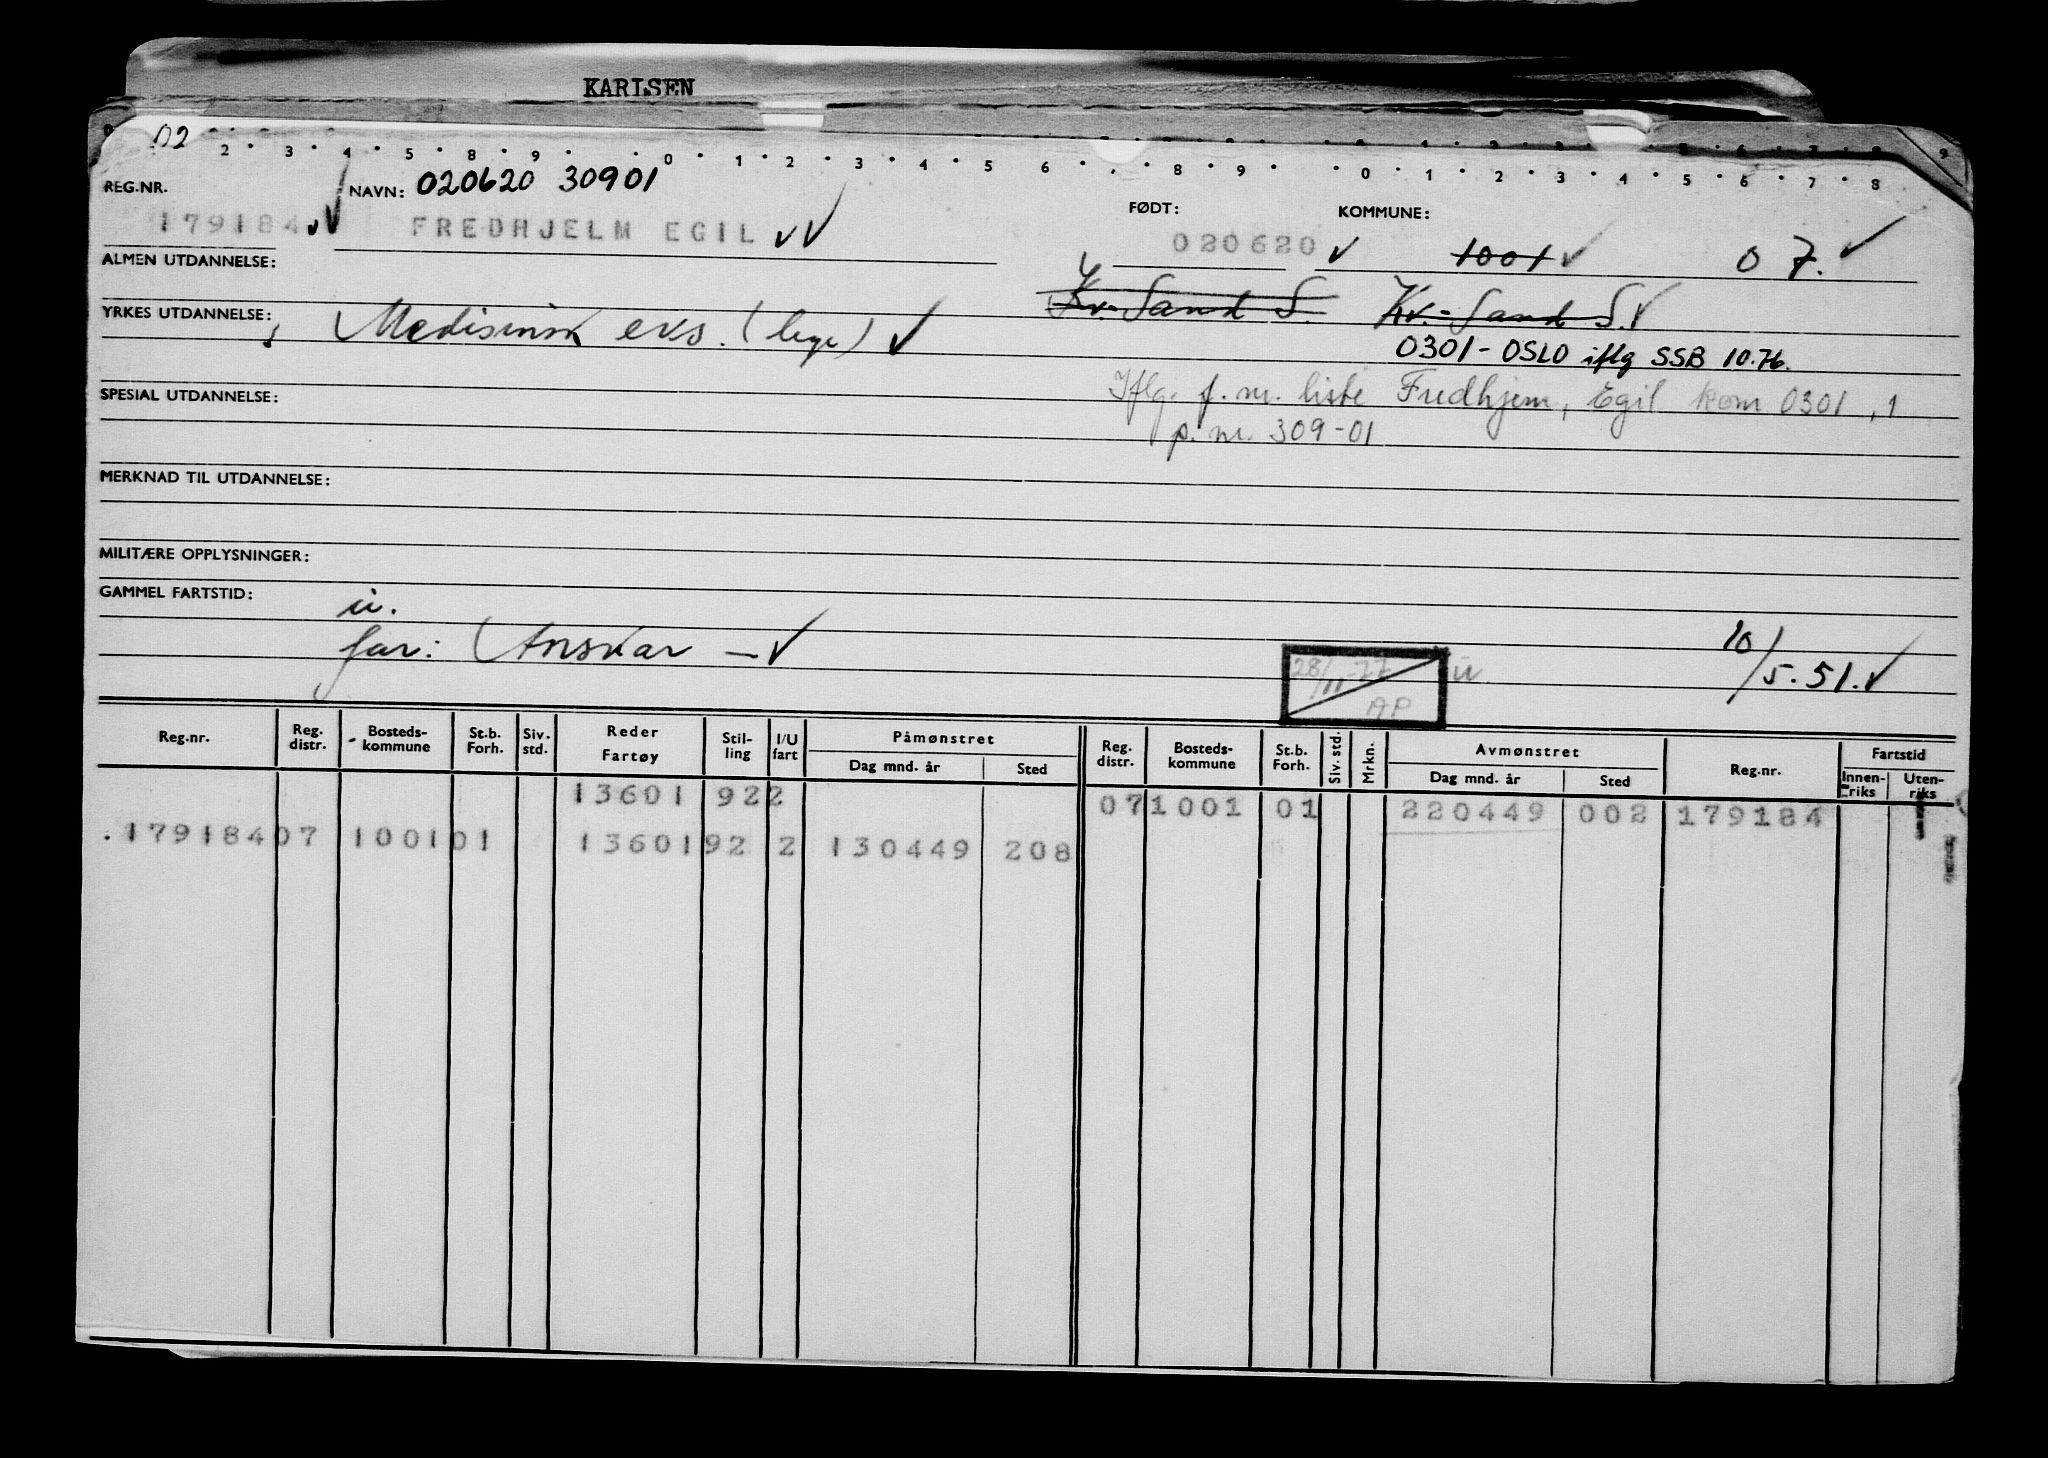 KARLSEN
02
2 · 3 · 4 · 5 · 8 · 9 · · 0 · 1 · 2 · 3 · 4 · 5 · 6 · · 8 · 9 · · 0 · 1 · 2 · 3 · 4 · 5 · 6 · 7 · 8
REG.NR. NAVN: 020620 30901
FØDT: KOMMUNE:
179184 FREDHJELM EGIL 020620 1001 07.
ALMEN UTDANNELSE:
Kr.-Sand S. Kr.-Sand S.
YRKES UTDANNELSE: Medisinsk eks. (lege)
0301-OSLO iflg SSB 10.76.
SPESIAL UTDANNELSE: Iflg. f.nr. liste Fredhjem, Egil kom 0301, 1
p.nr. 309-01
MERKNAD TIL UTDANNELSE:
MILITÆRE OPPLYSNINGER:
GAMMEL FARTSTID: u.
far: Anskar —
10/5.51.
28/11-77 AP u.
Reg.nr. Reg. distr. Bosteds-kommune St.b. Forh. Siv. std. Reder Fartøy Stil-ling I/U fart Påmønstret Dag mnd. år Sted Reg. distr. Bosteds-kommune St.b. Forh. Siv. std. Mrkn. Avmønstret Dag mnd. år Sted Reg.nr. Fartstid Innen-riks Uten-riks
13601 922 071001 01 220449 002 179184
179184 07 1001 01 13601 92 2 130449 208